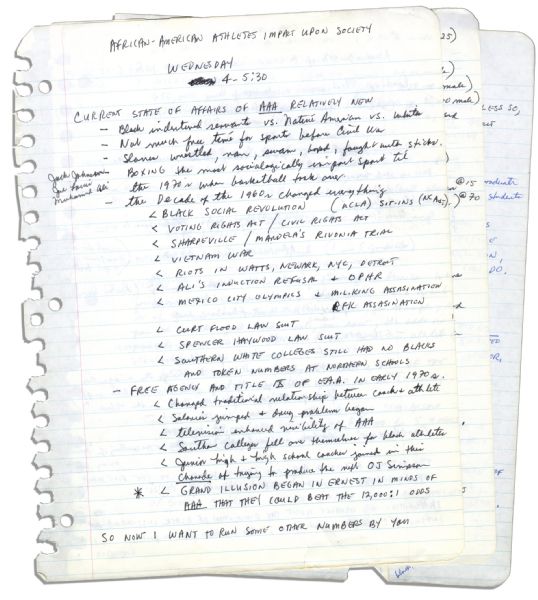 AFRICAN-AMERICAN ATHLETES IMPACT UPON SOCIETY
WEDNESDAY
4-5:30
CURRENT STATE OF AFFAIRS OF AAA RELATIVELY NEW
- Black indentured servant vs. Native American vs. white
- Not much free time for sports before Civil War
- Slaves wrestled, ran, swam, boxed, fought with sticks.
Jack Johnson
Joe Louis
Muhamad Ali
- BOXING the most sociologically import sport til
the 1970s when basketball took over
- the Decade of the 1960s changed everything
< BLACK SOCIAL REVOLUTION (UCLA) SIT-INS (NC A&T)
< VOTING RIGHTS ACT / CIVIL RIGHTS ACT
< SHARPEVILLE / MANDELA'S RIVONIA TRIAL
< VIETNAM WAR
< RIOTS IN WATTS, NEWARK, NYC, DETROIT
< ALI'S INDUCTION REFUSAL & OPHR
< MEXICO CITY OLYMPICS & MLKING ASSASINATION
RFK ASSASINATION
< CURT FLOOD LAW SUIT
< SPENCER HAYWOOD LAW SUIT
< SOUTHERN WHITE COLLEGES STILL HAD NO BLACKS
AND TOKEN NUMBERS AT NORTHERN SCHOOLS
- FREE AGENCY AND TITLE IX OF E.A.A. IN EARLY 1970s.
< Changed traditional relationship between coach & athlete
< Salaries jumped & drug problems began
< television enhanced visibility of AAA
< Southern colleges fell over themselves for black athletes
< Junior high & high school coaches joined in this
Charade of trying to produce the next OJ Simpson
* < GRAND ILLUSION BEGAN IN ERNEST IN MINDS OF
AAA THAT THEY COULD BEAT THE 12,000:1 ODDS
SO NOW I WANT TO RUN SOME OTHER NUMBERS BY YOU
25)
male)
male)
LESS SO,
@ 15
@ 70
graduate
students
DO.